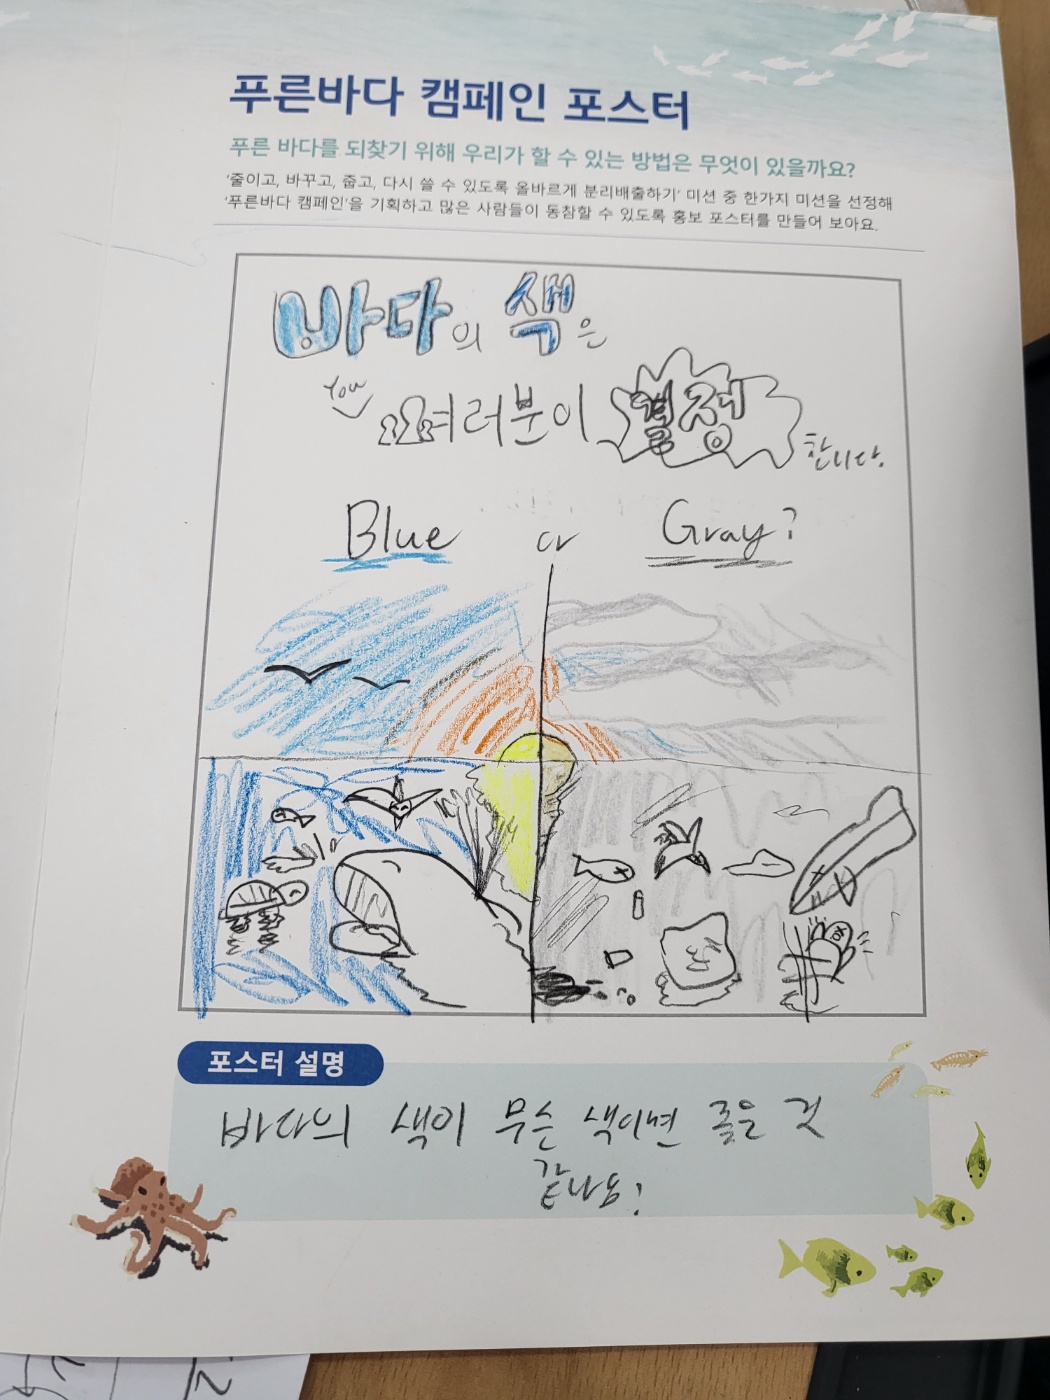 푸른바다 캠페인 포스터
푸른 바다를 되찾기 위해 우리가 할 수 있는 방법은 무엇이 있을까요?
'줄이고, 바꾸고, 줍고, 다시 쓸 수 있도록 올바르게 분리배출하기' 미션 중 한가지 미션을 선정해
'푸른바다 캠페인'을 기획하고 많은 사람들이 동참할 수 있도록 홍보 포스터를 만들어 보아요.
바다의 색은
You
여러분이 결정 합니다.
Blue or Gray?
포스터 설명
바다의 색이 무슨 색이면 좋을 것
같나요?